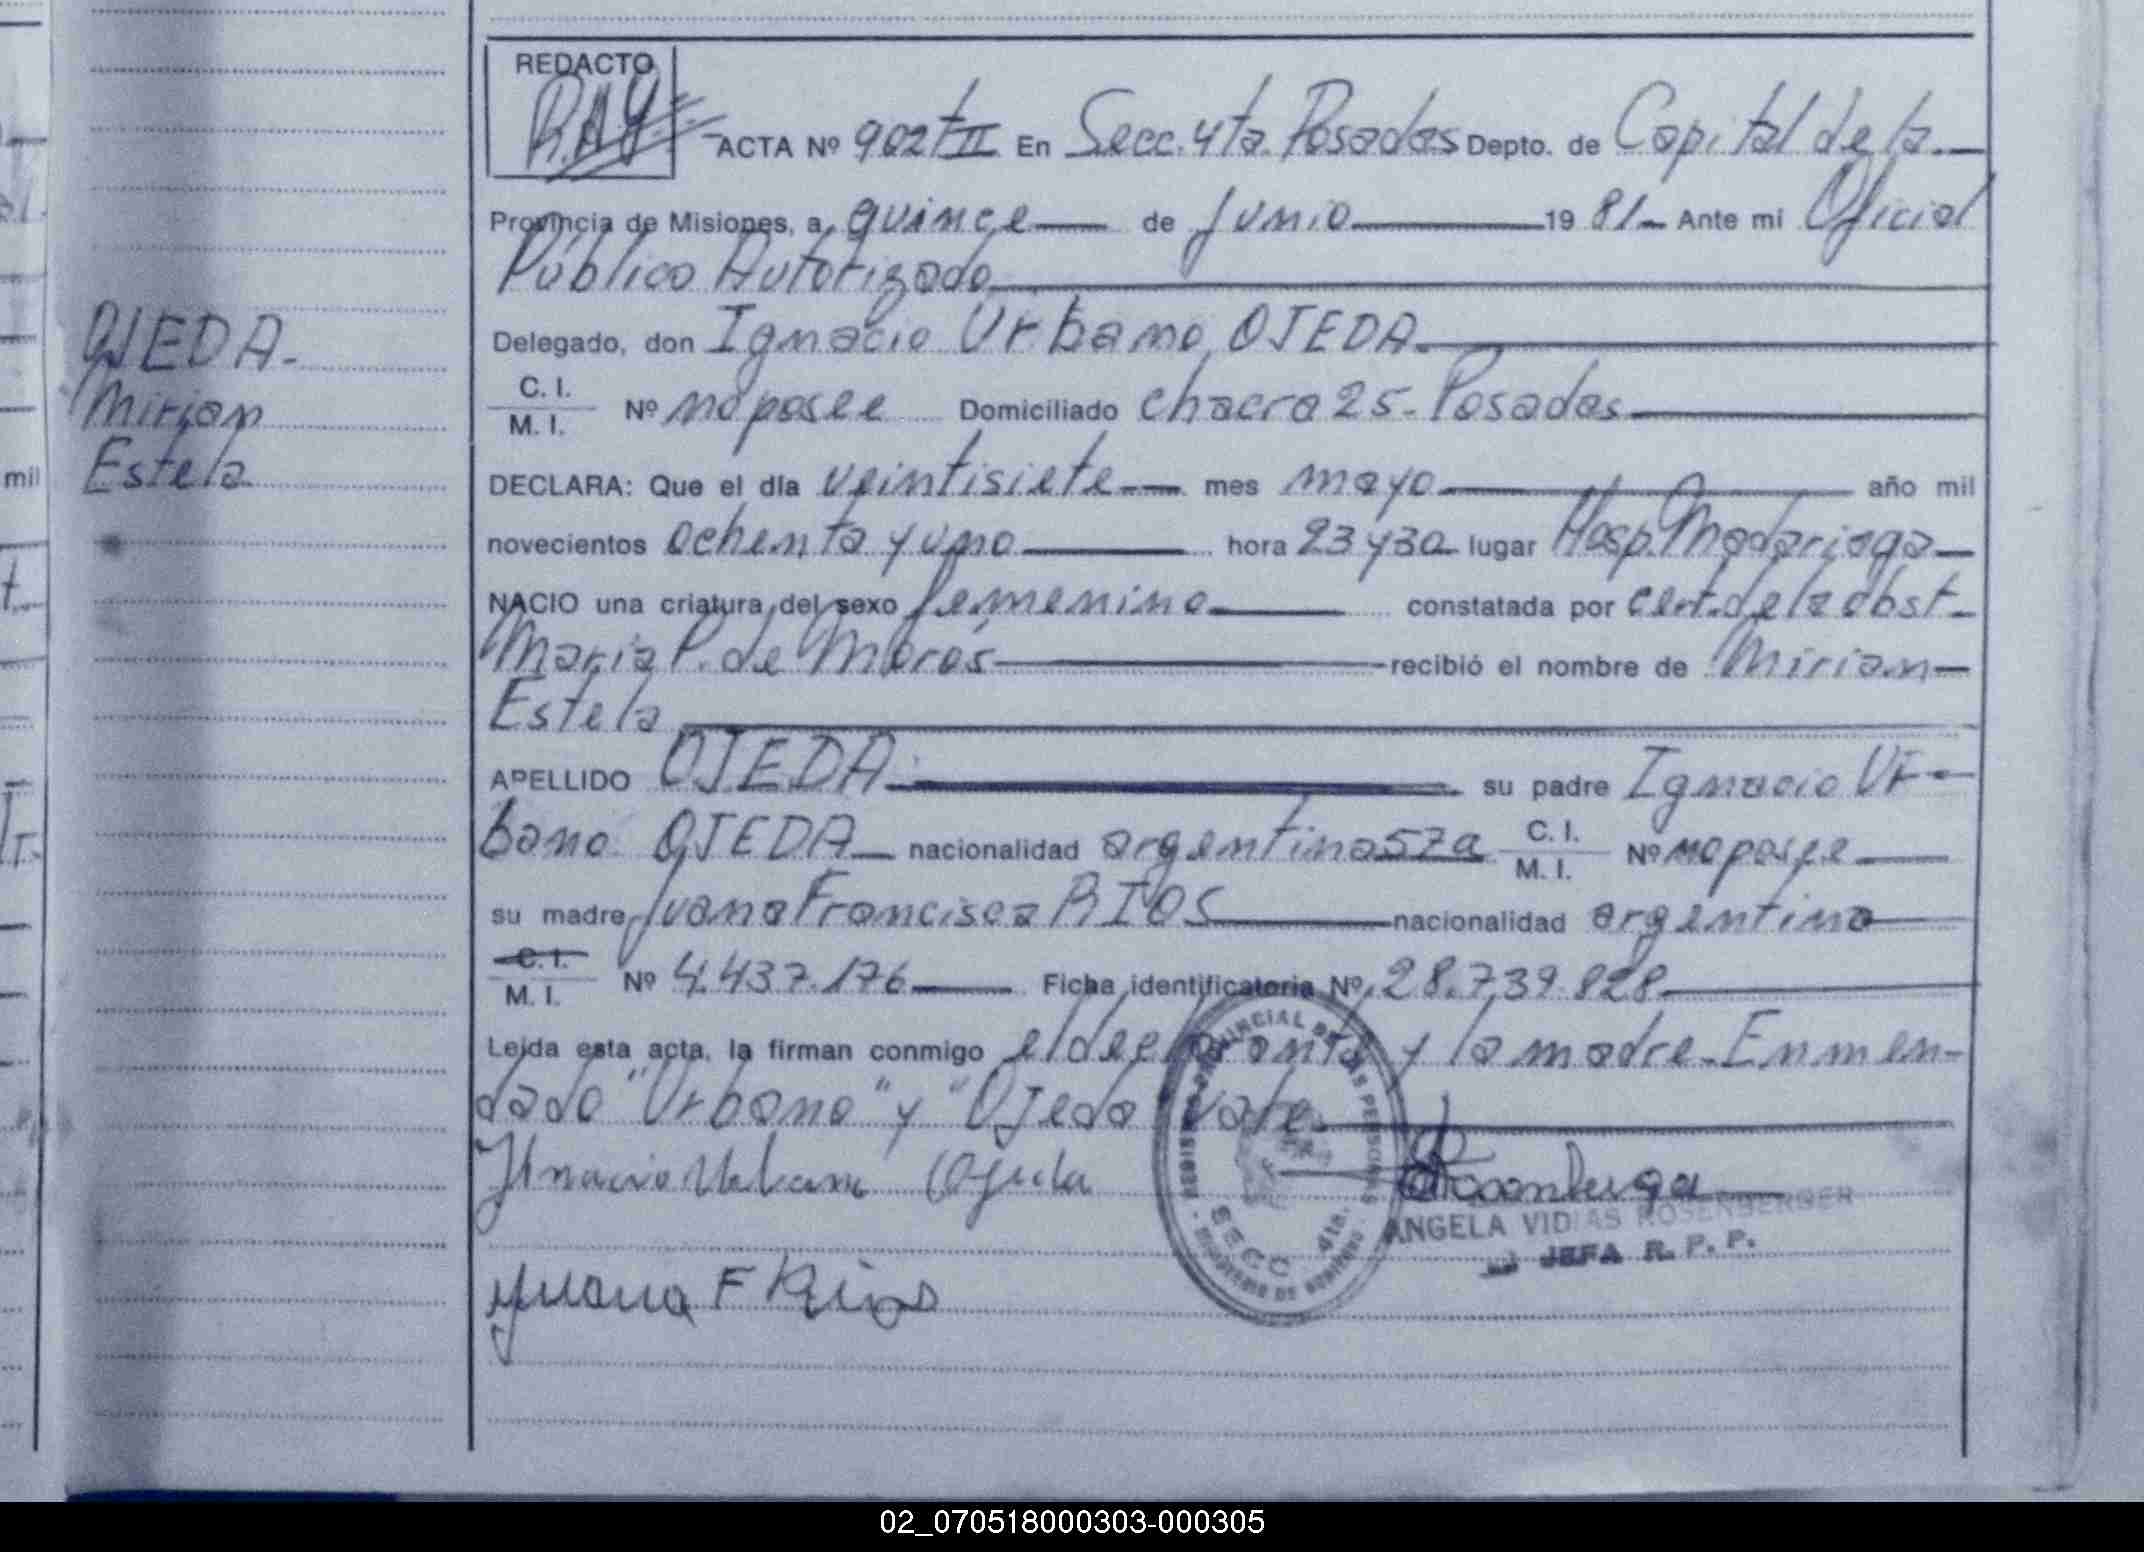 REDACTO
R.A.G
ACTA Nº 902 tII En Secc. 4ta. Posadas Depto. de Capital de la
Provincia de Misiones, a quince de Junio 1981 Ante mi Oficial
Público Autorizado
Delegado, don Ignacio Urbano OJEDA.
C. I.
M. I. Nº no posee Domiciliado chacra 25. Posadas
OJEDA.
Mirian
Estela
DECLARA: Que el día veintisiete mes mayo año mil
novecientos ochenta y uno hora 23 y 30 lugar Hosp. Madariaga
NACIO una criatura del sexo femenino constatada por cert. de la obst.
Maria P. de Morós recibió el nombre de Mirian
Estela
APELLIDO OJEDA su padre Ignacio Ur-
bano OJEDA nacionalidad argentino 57a C. I.
M. I. Nº no posee
su madre Juana Francisca RIOS nacionalidad argentina
C. I.
M. I. Nº 4.437.176 Ficha identificatoria Nº 28.739.828
Leida esta acta, la firman conmigo el declarante y la madre. Enmen-
dado "Urbano" y "Ojeda" vale
Ignacio Urbano Ojeda
Juana F Rios
REGISTRO PROVINCIAL DE LAS PERSONAS
SECC. 4ta.
ANGELA VIDIAS ROSENBERGER
JEFA R. P. P.
mil
02_070518000303-000305